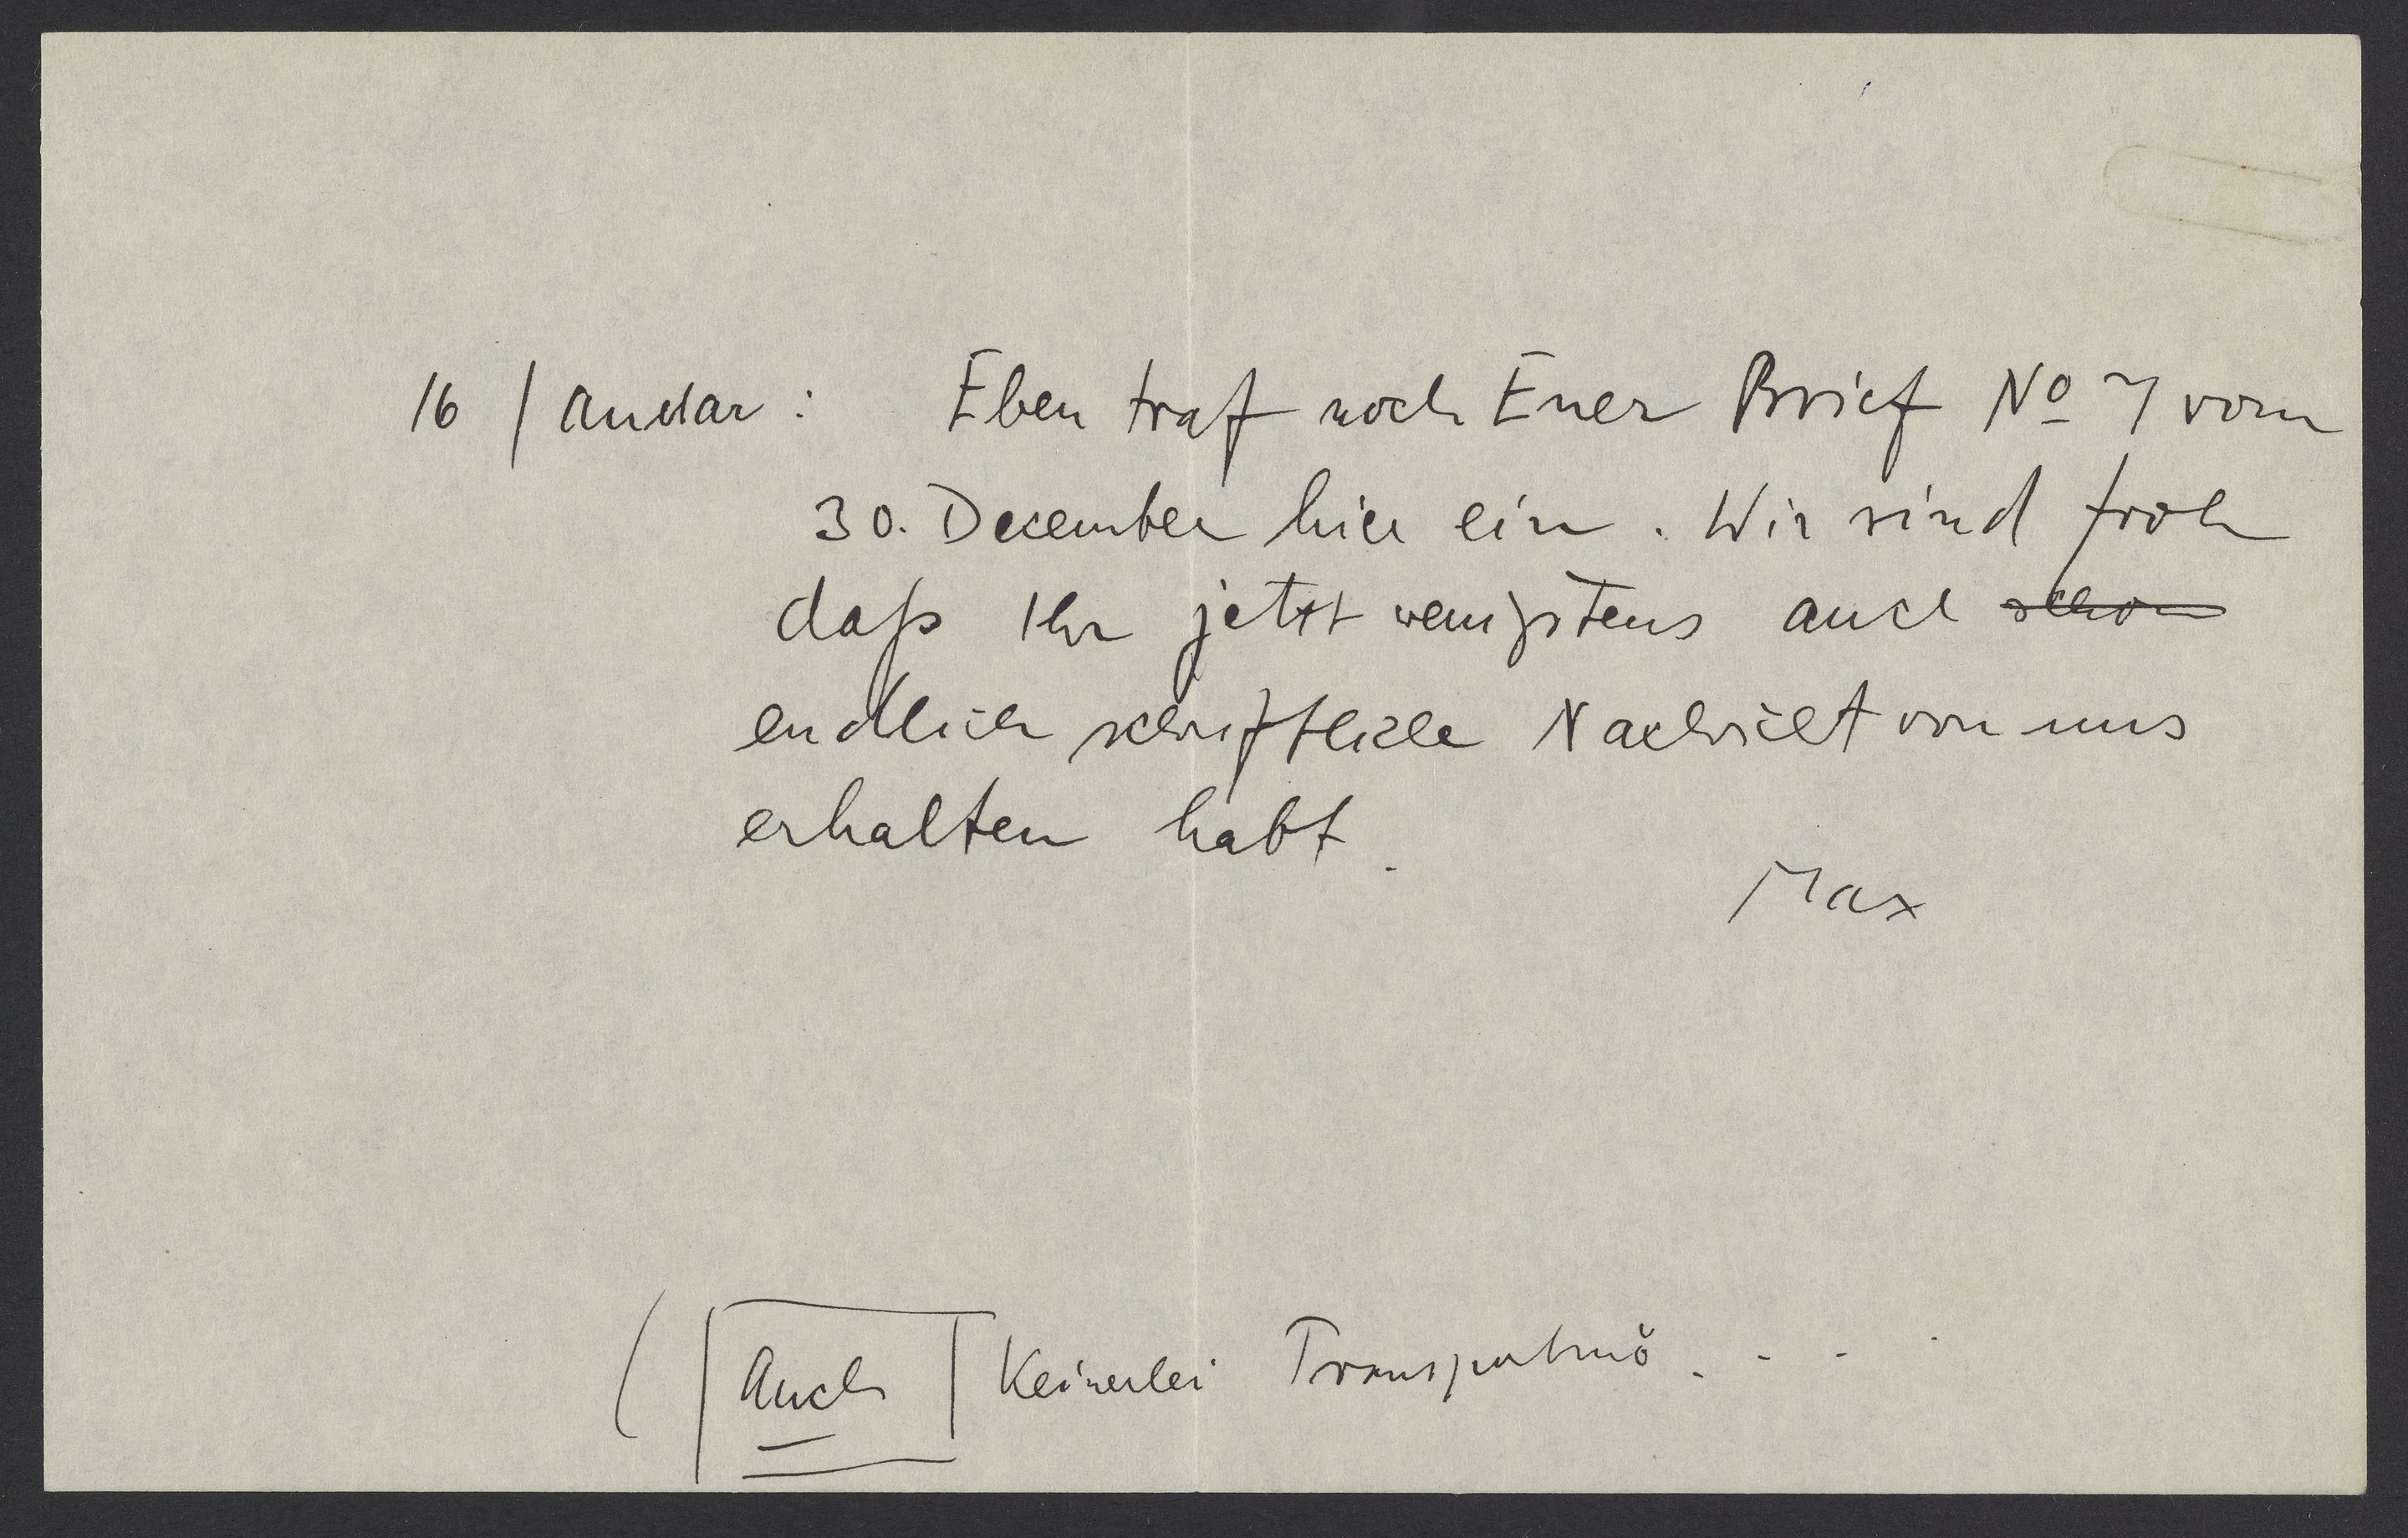 16 / andar : Eben traf noch Euer Brief Nº 7 vom
30. December hier ein. Wir sind froh
daß Ihr jetzt wenigstens auch schon
endlich schriftliche Nachricht von uns
erhalten habt.
Max
( | Auch | Keinerlei